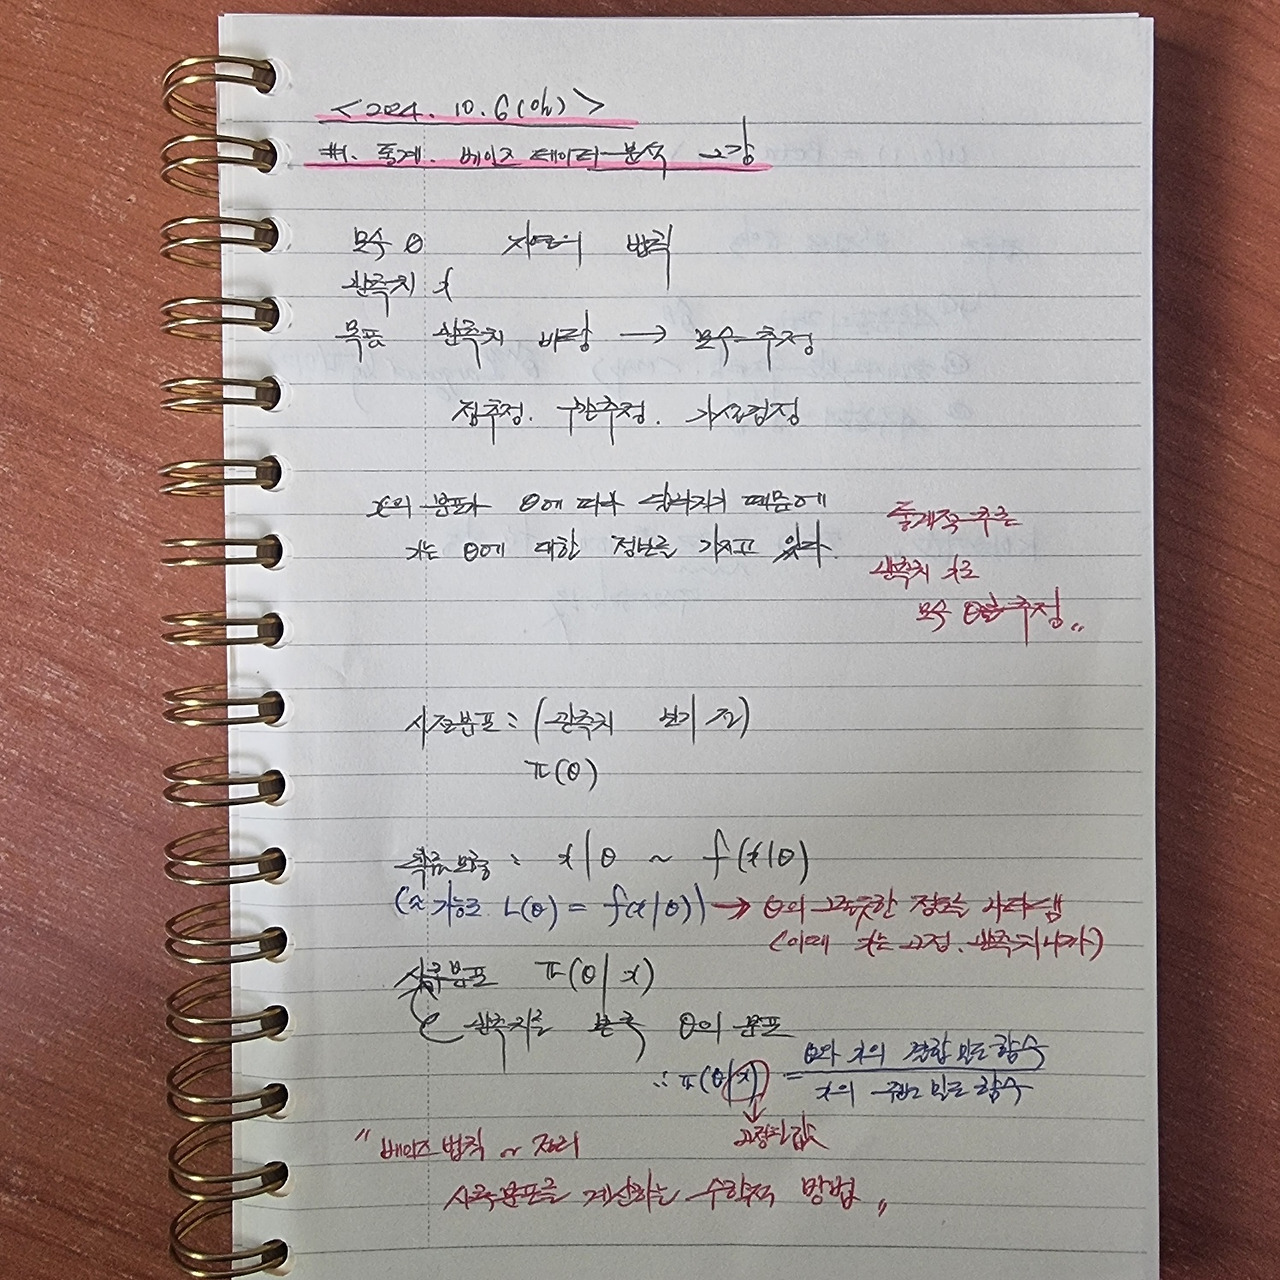 <2024. 10. 6(일)>
#1. 통계. 베이즈 데이터 분석 1강
모수 θ 자연의 법칙
관측치 x
목표 관측치 바탕 → 모수 추정
점추정. 구간추정. 가설검정
x의 분포가 θ에 따라 달라지기 때문에
x는 θ에 대한 정보를 가지고 있다.
통계적 추론
관측치 x로
모수 θ를 추정〃
사전분포 : (관측치 보기 전)
π(θ)
확률모형 : x|θ ~ f(x|θ)
가능도 L(θ) = f(x|θ)) → θ의 그럴듯한 정보를 나타냄
(이때 x는 고정. 관측치니까)
사후분포 π(θ|x)
관측치를 본 후 θ의 분포
∴ π(θ|x) = θ와 x의 결합 밀도 함수
x의 주변 밀도 함수
고정된 값
〃 베이즈 법칙 ~ 정리
사후분포를 계산하는 수학적 방법 〃